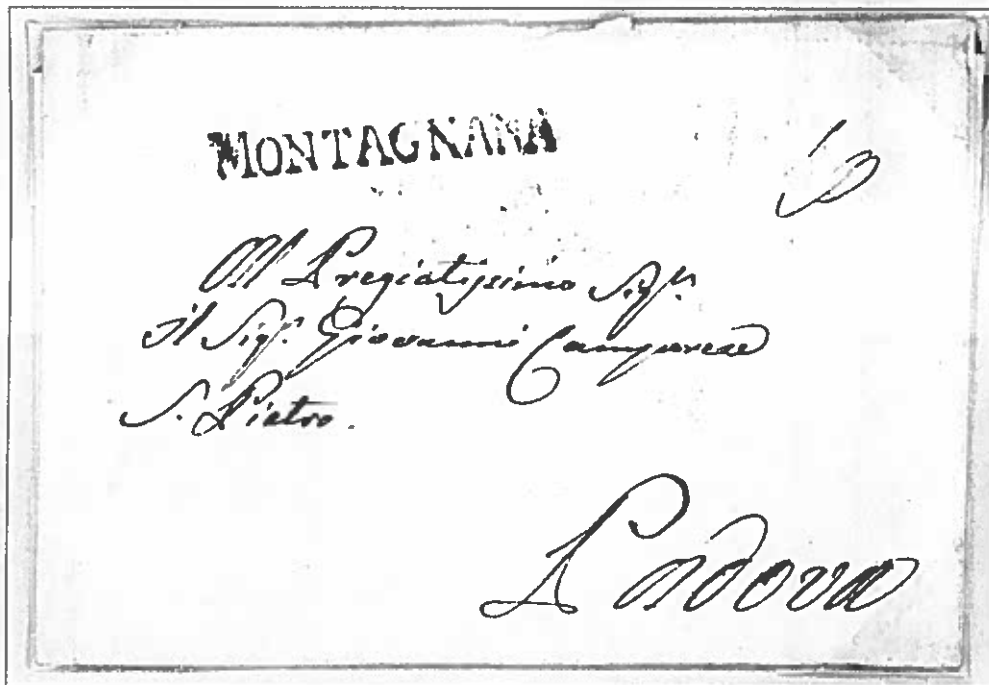 MONTAGNANA
All Pregiatissimo Sigr.
il Sigr. Giovanni Camporese
S. Pietro.
Padova